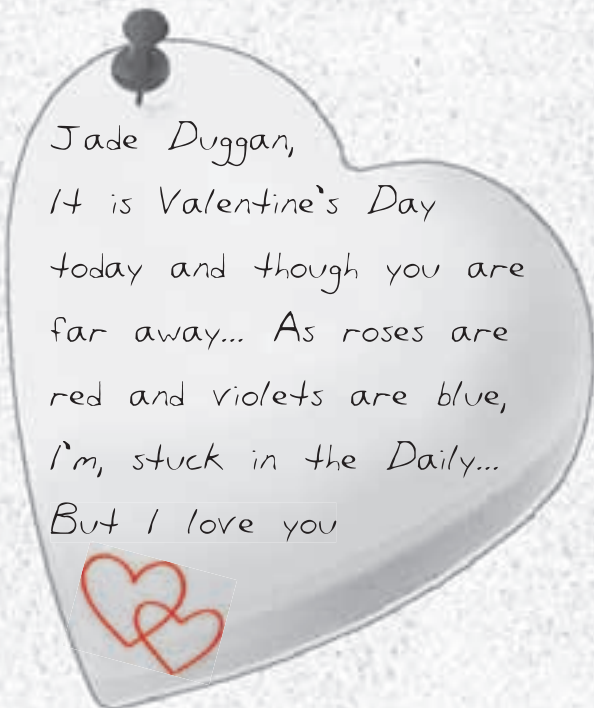 Jade Duggan,
It is Valentine's Day
today and though you are
far away... As roses are
red and violets are blue,
I'm, stuck in the Daily...
But I love you